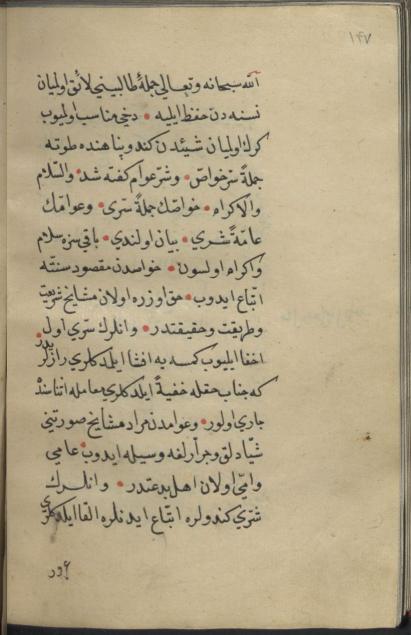 ١٤٧
الله سبحانه وتعالى جملهٔ طالبينى لائق اولميان
نسنه دن حفظ ايليه • دخى مناسب اولميوب
كرك اولميان شيئدن كندو پناهنده طوته
جملهٔ سرّ خواصّ • وشرّ عوام كفته شد • والسّلام
والاكرام • خواصّك جملهٔ سرّى • وعوامّك
عامّهٔ شرّى • بيان اولندى • باقى سزه سلام
واكرام اولسون • خواصدن مقصود سنّته
اتّباع ايدوب • حق اوزره اولان مشايخ شريعت
وطريقت وحقيقتدر • وانلرك سرّى اولدر
اخفا ايليوب كمسه يه افشا ايلمدكلرى رازلردر
كه جناب حقله خفيةً ايلدكلرى معامله اثناسنده
جارى اولور • وعوامدن مراد مشايخ صورتينى
شيّادلق وجرّارلغه وسيله ايدوب عامى
وامّى اولان اهل بدعتدر • وانلرك
شرّى كندولره اتّباع ايدنلره القا ايلدكلرى